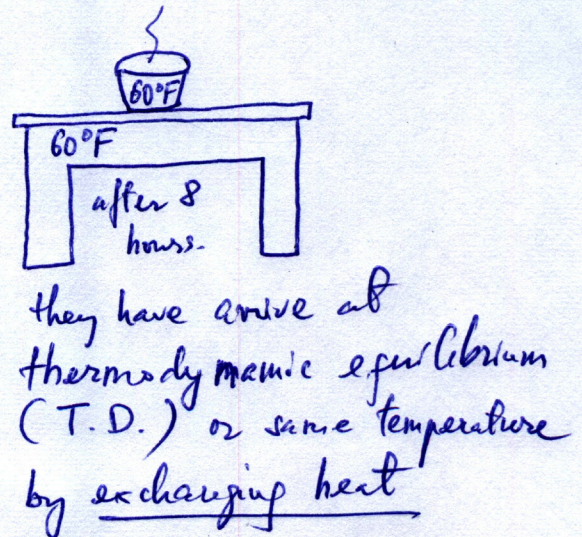 60°F
60°F
after 8
hours.
they have arrive at
thermodynamic equilibrium
(T.D.) or same temperature
by exchanging heat